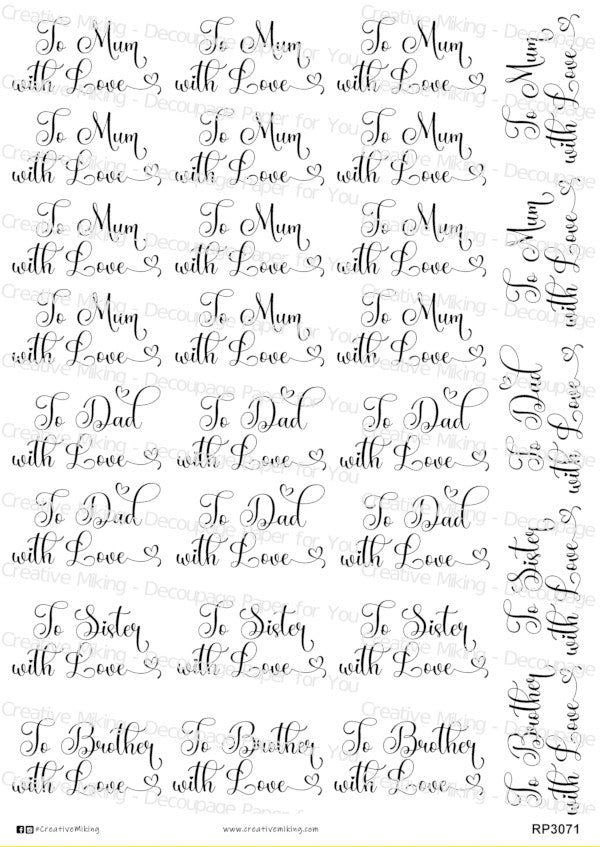 To Mum
with Love
To Mum
with Love
To Mum
with Love
To Mum
with Love
To Mum
with Love
To Mum
with Love
To Mum
with Love
To Mum
with Love
To Mum
with Love
To Mum
with Love
To Mum
with Love
To Mum
with Love
To Dad
with Love
To Dad
with Love
To Dad
with Love
To Dad
with Love
To Dad
with Love
To Dad
with Love
To Sister
with Love
To Sister
with Love
To Sister
with Love
To Brother
with Love
To Brother
with Love
To Brother
with Love
To Mum
with Love
To Mum
with Love
To Dad
with Love
To Sister
with Love
To Brother
with Love
Creative Miking - Decoupage Paper for You
#CreativeMiking
www.creativemiking.com
RP3071